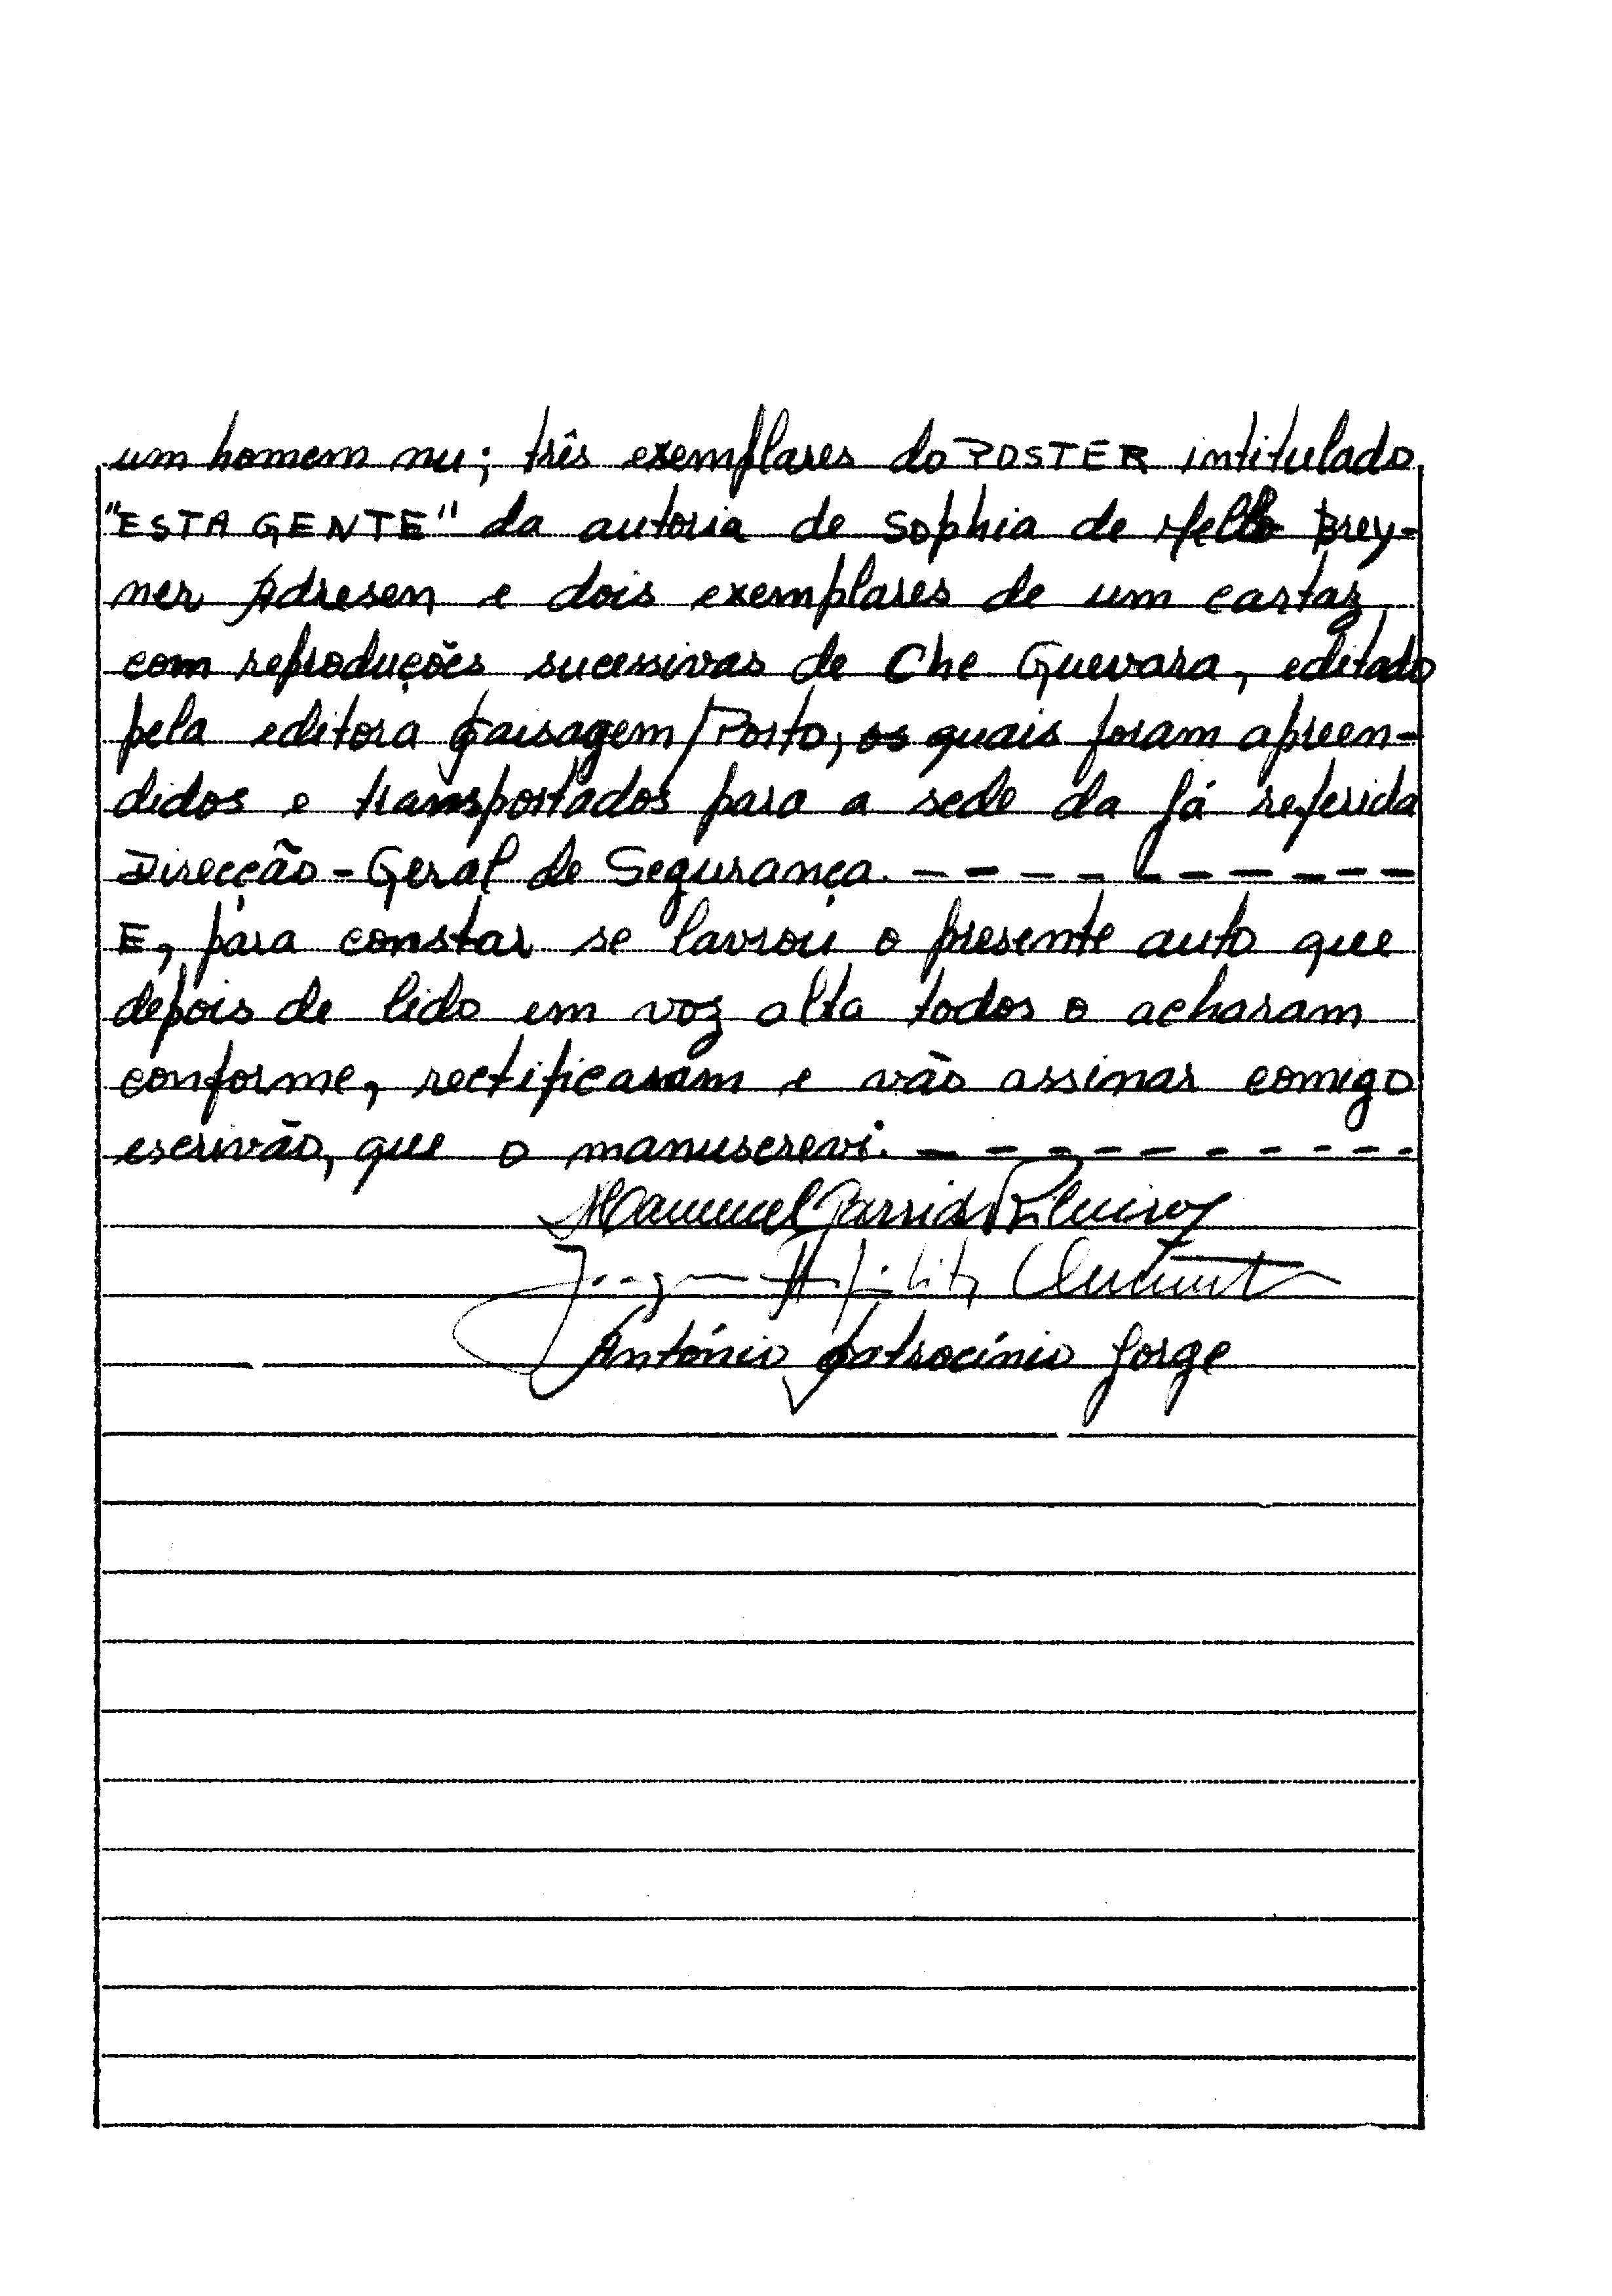 um homem nu; três exemplares do POSTER intitulado
"ESTA GENTE" da autoria de Sophia de Mello Brey-
ner Adresen e dois exemplares de um cartaz
com reproduções sucessivas de Che Guevara, editado
pela editora paisagem/Porto, os quais foram apreen-
didos e transportados para a sede da já referida
Direcção-Geral de Segurança. - - - - - - - - - -
E, para constar se lavrou o presente auto que
depois de lido em voz alta todos o acharam
conforme, rectificaram e vão assinar comigo
escrivão, que o manuscrevi. - - - - - - - - - -
Manuel Garrido
Joaquim Hipólito
António patrocínio Jorge